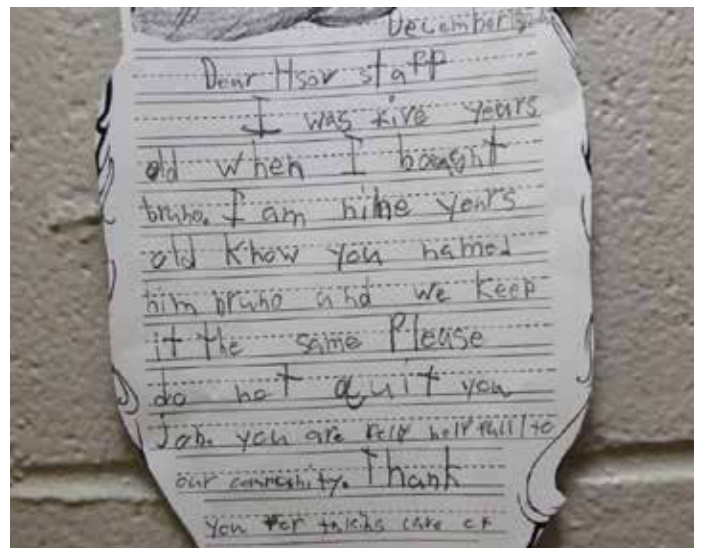 December
Dear Hsov staff
I was five years
old when I bought
bruno. I am nine years
old know you named
him bruno and we keep
it the same Please
do not quit you
Job. you are help full to
our community. Thank
you for taking care of